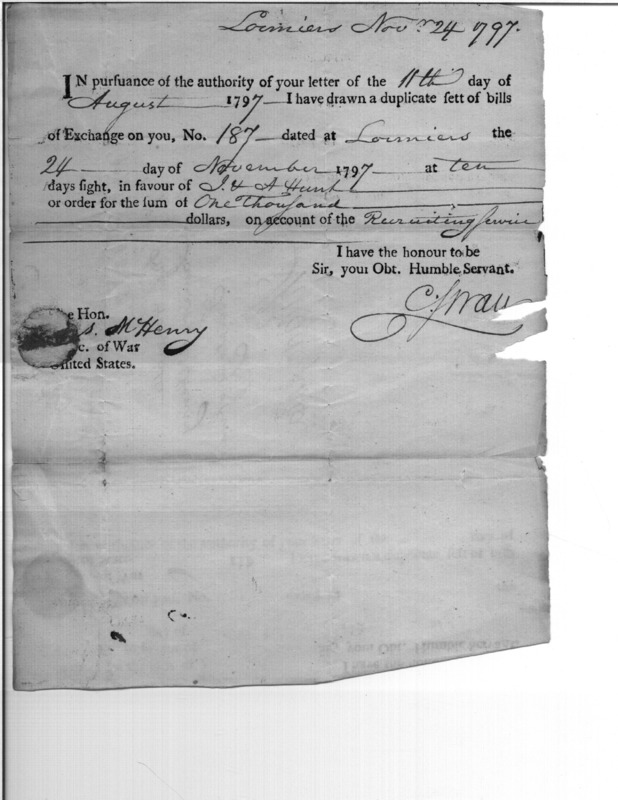 Loimiers Nov.r 24 1797.
IN purſuance of the authority of your letter of the 11th day of
August 1797 — I have drawn a duplicate ſett of bills
of Exchange on you, No. 187 — dated at Loimiers the
24 day of November 1797 — at ten
days ſight, in favour of J. & A Hunt
or order for the ſum of One Thousand
dollars, on account of the Recruiting Service
I have the honour to be
Sir, your Obt. Humble Servant.
C. Swan
e Hon.
s. McHenry
c. of War
United States.